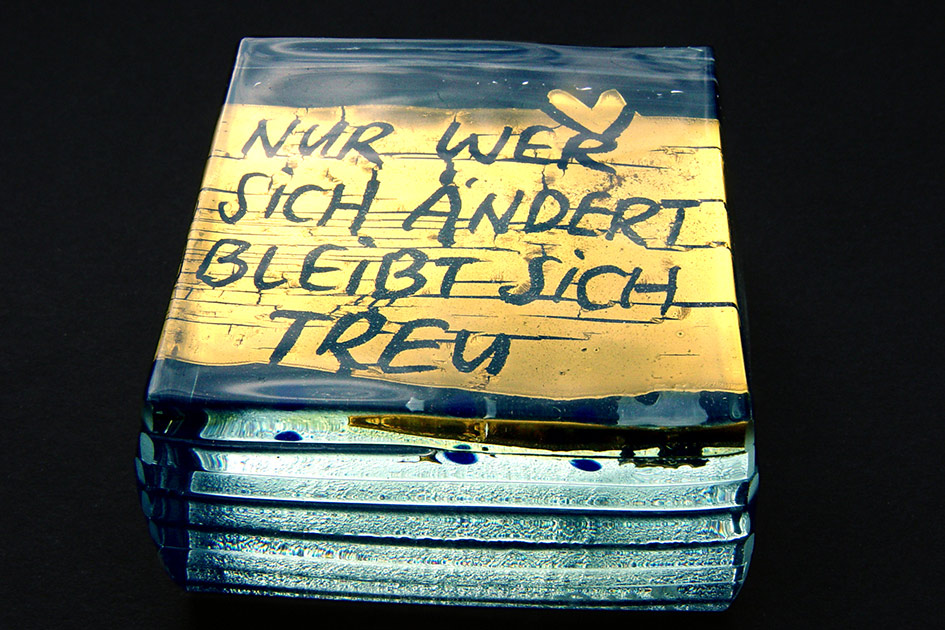 NUR WER
SiCH ÄNDERT
BLEiBT SiCH
TREU